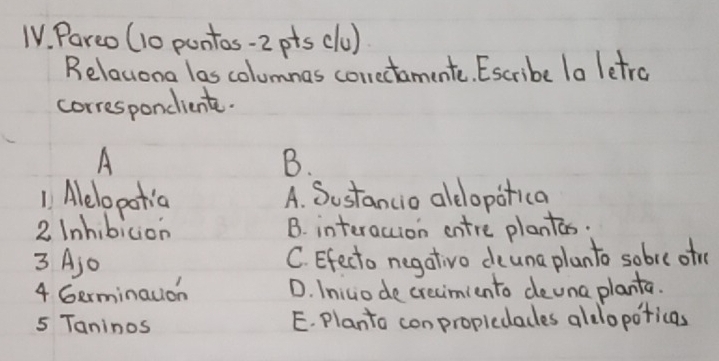 IV. Pareo (10 puntos - 2 pts c/u)
Relaciona las columnas correctamente. Escribe la letra
correspondiente.
A B.
1. Alelopatía A. Sustancia alelopática
2 Inhibición B. interacción entre plantas.
3 Ajo C. Efecto negativo de una planta sobre otra
4 Germinación D. Inicio de crecimiento de una planta.
5 Taninos E. Planta con propiedades alelopáticas